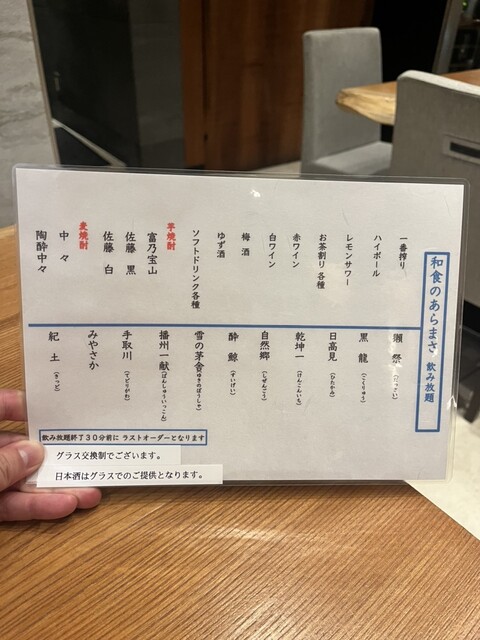 和食のあらまさ 飲み放題
一番搾り
ハイボール
レモンサワー
お茶割り各種
赤ワイン
白ワイン
梅酒
ゆず酒
ソフトドリンク各種
芋焼酎
富乃宝山
佐藤 黒
佐藤 白
麦焼酎
中々
陶酔中々
獺祭(だっさい)
黒龍(こくりゅう)
日高見(ひたかみ)
乾坤一(けんこんいち)
自然郷(しぜんごう)
酔鯨(すいげい)
雪の茅舎(ゆきのぼうしゃ)
播州一献(ばんしゅういっこん)
手取川(てどりがわ)
みやさか
紀土(きっど)
飲み放題終了30分前に ラストオーダーとなります
グラス交換制でございます。
日本酒はグラスでのご提供となります。